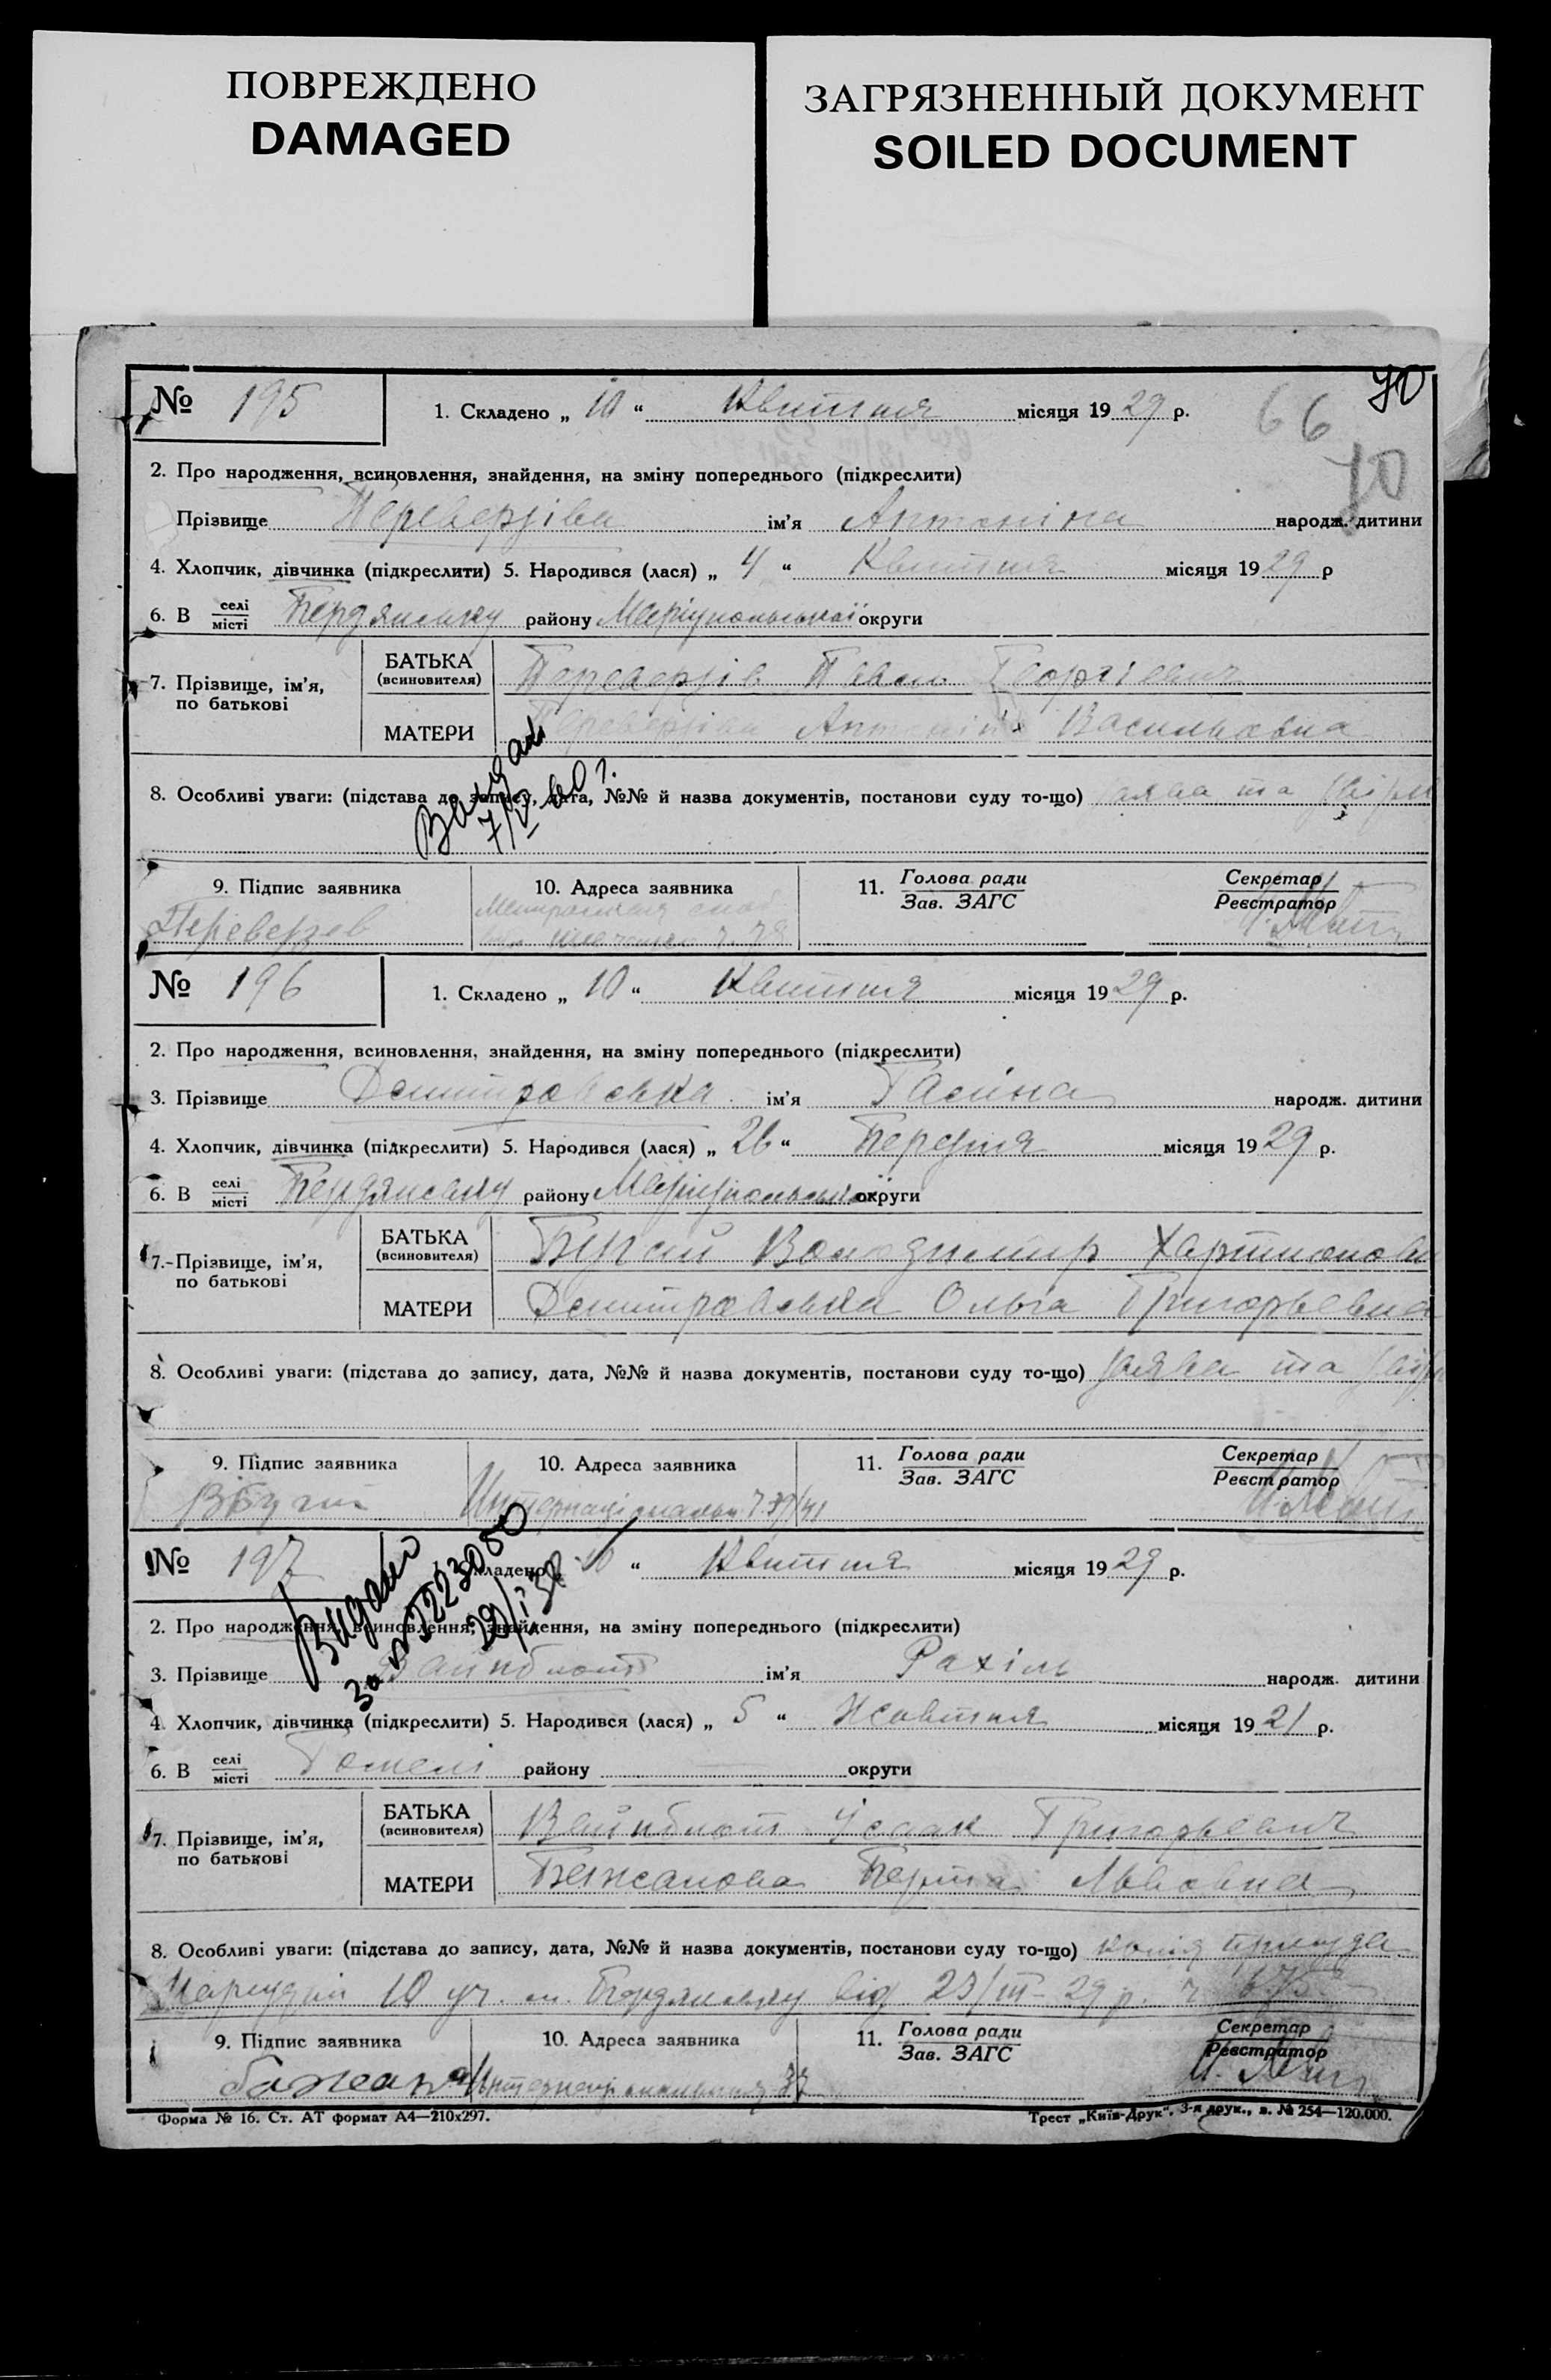 ПОВРЕЖДЕНО
DAMAGED
ЗАГРЯЗНЕННЫЙ ДОКУМЕНТ
SOILED DOCUMENT
№ 195
1. Складено „ 10 “ Квитня місяця 1929 р.
66
70
70
2. Про народження, всиновлення, знайдення, на зміну попереднього (підкреслити)
Прізвище Переверзіва ім’я Антоніна народж. дитини
4. Хлопчик, дівчинка (підкреслити) 5. Народився (лася) „ 4 “ Квитня місяця 1929 р
6. В селі/місті Бердянську району Маріупольської округи
7. Прізвище, ім’я, по батькові
БАТЬКА (всиновителя) Переверзів Павел Георгіевич
МАТЕРИ Переверзіва Васильовна
8. Особливі уваги: (підстава до запису, дата, №№ й назва документів, постанови суду то-що) заява та
9. Підпис заявника
10. Адреса заявника
11. Голова ради / Зав. ЗАГС
Секретар / Реєстратор
Переверзев
№ 196
1. Складено „ 10 “ Квитня місяця 1929 р.
2. Про народження, всиновлення, знайдення, на зміну попереднього (підкреслити)
3. Прізвище ім’я Галина народж. дитини
4. Хлопчик, дівчинка (підкреслити) 5. Народився (лася) „ 26 “ Березня місяця 1929 р.
6. В селі/місті Бердянську району Маріупольської округи
7. Прізвище, ім’я, по батькові
БАТЬКА (всиновителя) Бугай Володимир
МАТЕРИ Ольга Григорьевна
8. Особливі уваги: (підстава до запису, дата, №№ й назва документів, постанови суду то-що) заява та
9. Підпис заявника
10. Адреса заявника
11. Голова ради / Зав. ЗАГС
Секретар / Реєстратор
№ 197
Складено „ 10 “ Квитня місяця 1929 р.
Видано
2. Про народження, всиновлення, знайдення, на зміну попереднього (підкреслити)
3. Прізвище Вайнблат ім’я Рахіль народж. дитини
4. Хлопчик, дівчинка (підкреслити) 5. Народився (лася) „ 5 “ Жовтня місяця 1921 р.
6. В селі/місті Гомелі району округи
7. Прізвище, ім’я, по батькові
БАТЬКА (всиновителя) Вайнблат Ісаак Григорьевич
МАТЕРИ Берта Львовна
8. Особливі уваги: (підстава до запису, дата, №№ й назва документів, постанови суду то-що) копія
Нарсудом 10 уч. м. Бердянську від 23/III-29 р. ч. 675
9. Підпис заявника
10. Адреса заявника
11. Голова ради / Зав. ЗАГС
Секретар / Реєстратор
Форма № 16. Ст. АТ формат А4—210x297.
Трест „Київ-Друк“, 3-я друк., з. № 254—120.000.